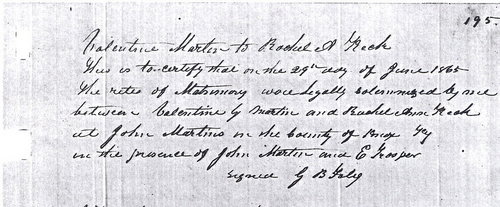 195.
Valentine Martin to Rachel A Heck
This is to certify that on the 29th day of June 1865
the rites of Matrimony were legally solemnized by me
between Valentine G Martin and Rachel Ann Heck
at John Martins in the County of Ky
in the presence of John Martin and E
signed G B